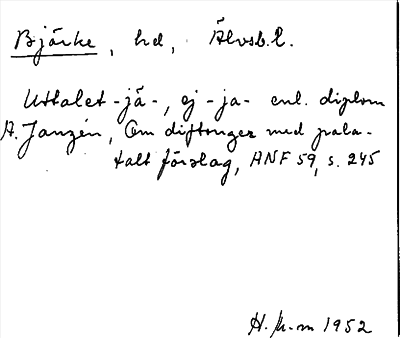 Bjärke, hd, Älvsb. l.
Uttalet -jä-, ej -ja- enl. diplom
A. Janzén, Om diftonger med pala-
talt förslag, ANF 59, s. 245
H. 1952